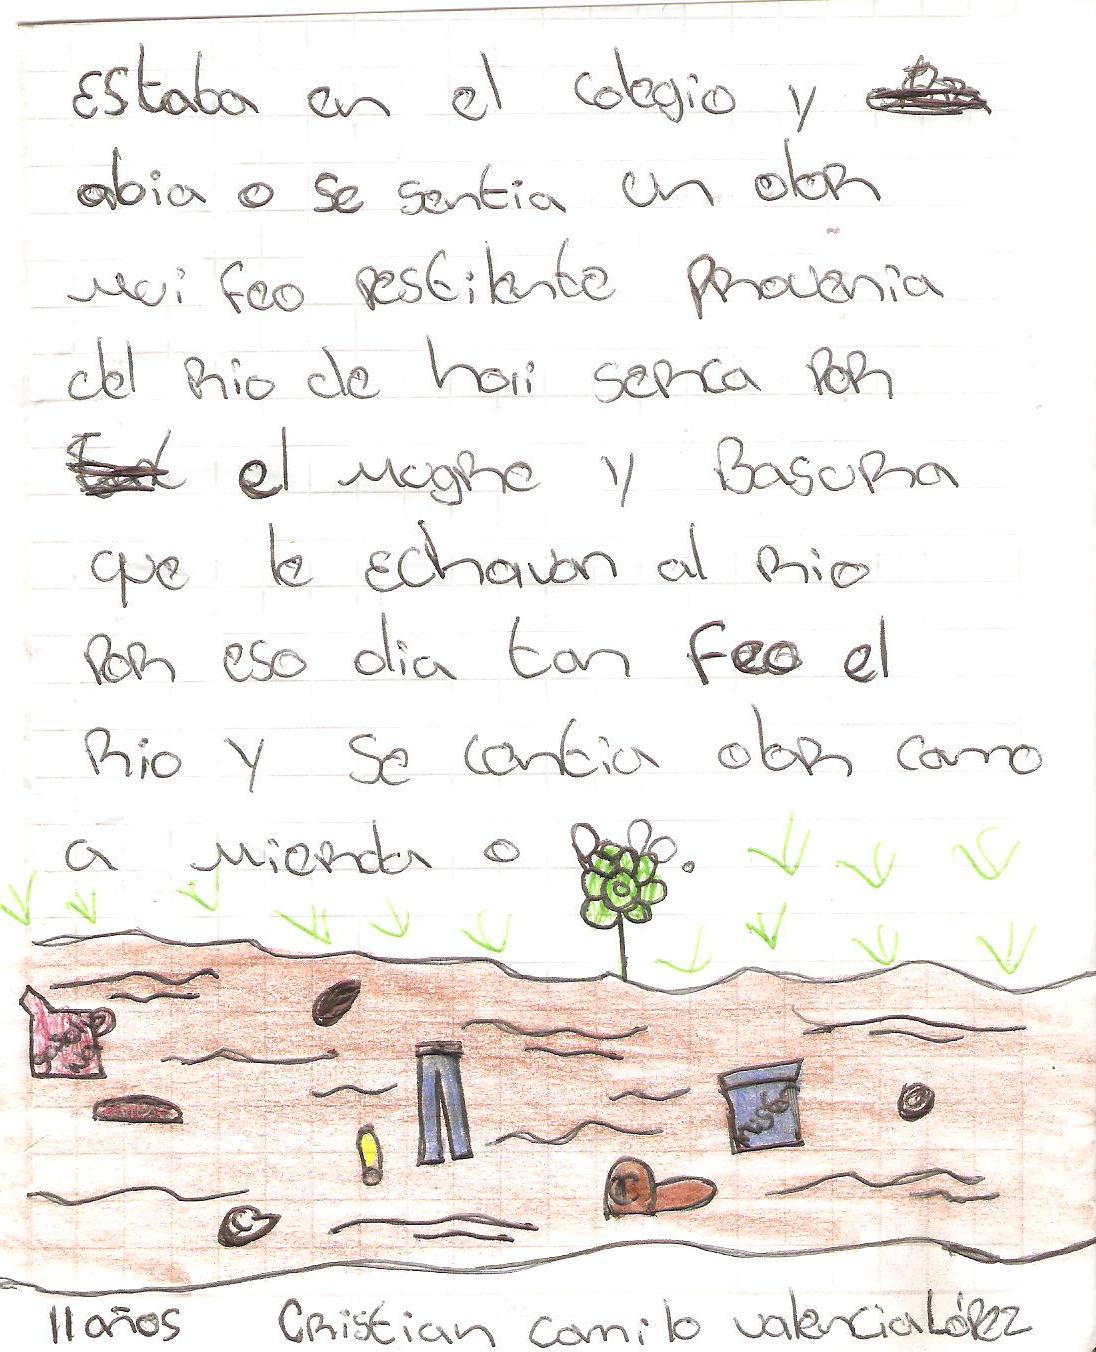 Estaba en el colegio y
abia o se sentia un olor
mui feo pestilente provenia
del rio de haii serca por
el mugre y Basura
que le echavan al rio
por eso olia tan feo el
Rio y se centia olor como
a mierda o PoPo.
11 años Cristian camilo valencia López